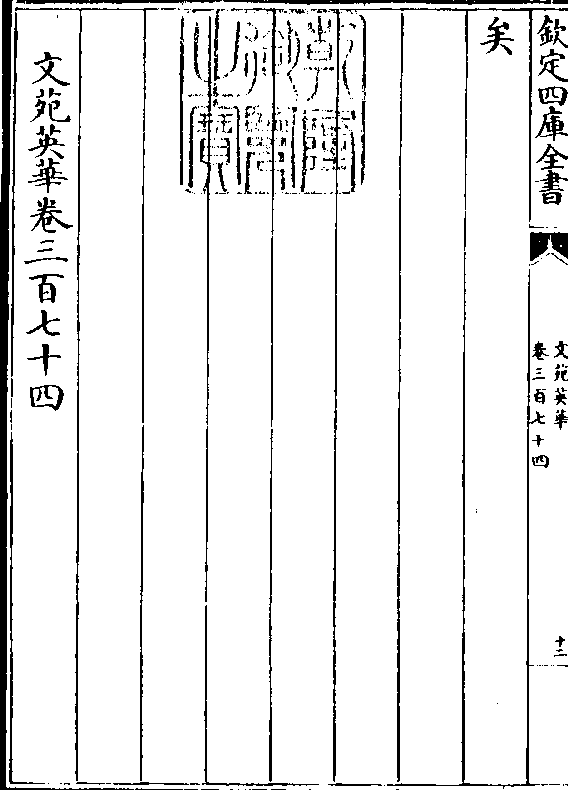 欽定四庫全書
文苑英華
卷三百七十四
十二
矣
乾隆御覽之寶
文苑英華卷三百七十四